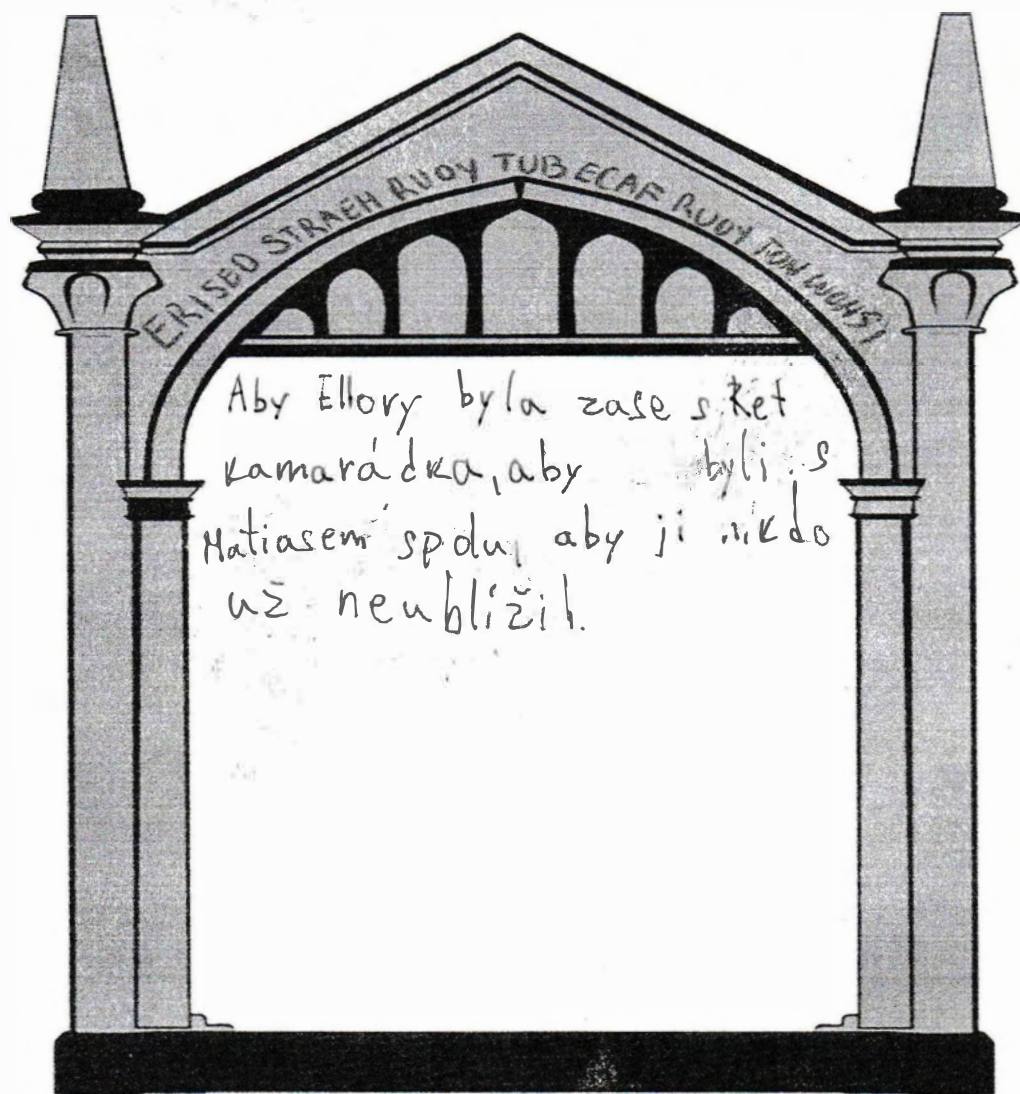 ERISED STRAEH RUOY TUB ECAF RUOY TON WOHSI
Aby Ellory byla zase s Ket
kamarádka, aby byli s
Matiasem spolu, aby ji nikdo
už neublížil.